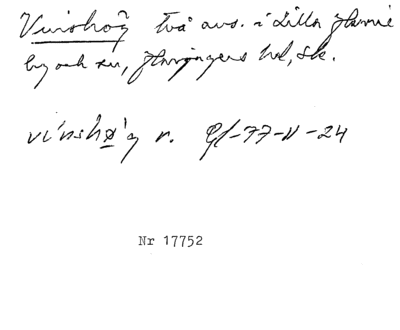 Vinshög två avs. i Lilla Harrie
by och sn, Harjagers hd, Sk.
vi'nshø'g n. Gl-77-N-24
Nr 17752